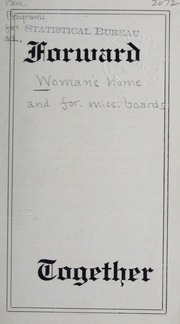 Pam. 2072
Programs
for STATISTICAL BUREAU
ad.
Forward
Woman's home
and for. miss. boards
Together